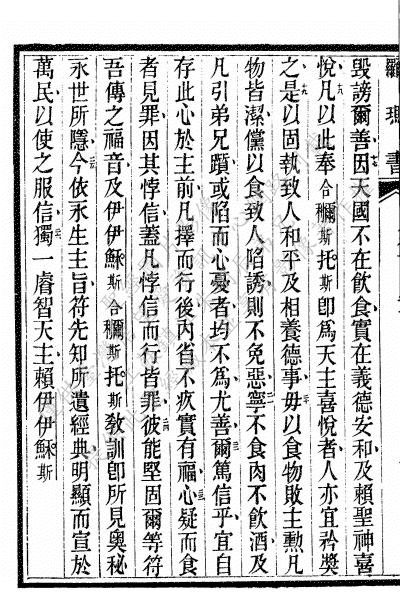 羅瑪書
毀謗爾善因天國不在飲食實在義德安和及賴聖神喜
悅凡以此奉合穪斯托斯卽爲天主喜悅者人亦宜矜奬
之是以固執致人和平及相養德事毋以食物敗主勳凡
物皆潔儻以食致人陷誘則不免惡寧不食肉不飲酒及
凡引弟兄躓或陷而心憂者均不爲尤善爾篤信乎宜自
存此心於主前凡擇而行後內省不疚實有福心疑而食
者見罪因其悖信蓋凡悖信而行皆罪彼能堅固爾等符
吾傳之福音及伊伊穌斯合穪斯托斯敎訓卽所見奥秘
永世所隱今依永生主旨符先知所遺經典明顯而宣於
萬民以使之服信獨一睿智天主賴伊伊穌斯